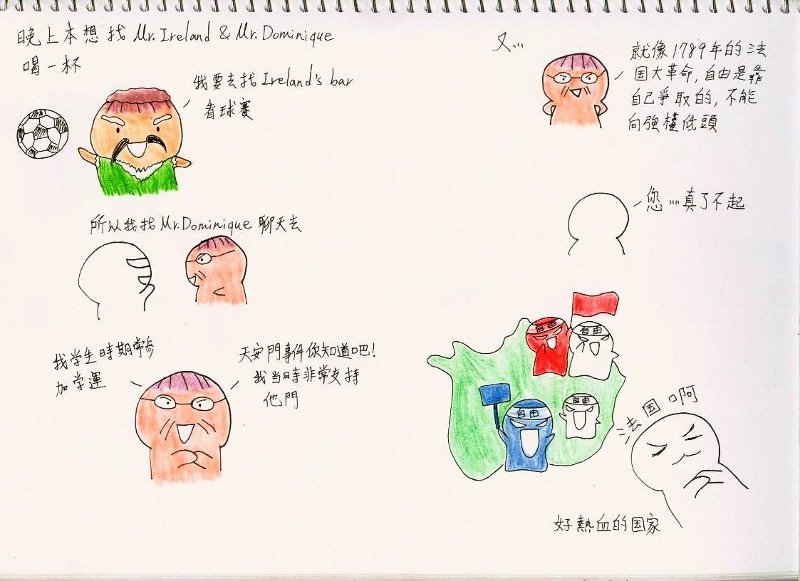 晚上本想找 Mr. Ireland & Mr. Dominique
喝一杯
我要去找 Ireland's bar
看球賽
所以我找 Mr. Dominique 聊天去
我学生時期常参
加学運
天安門事件你知道吧!
我当時非常支持
他門
又...
就像1789年的法
国大革命,自由是靠
自己爭取的,不能
向強權低頭
您...真了不起
自由
自由
自由
自由
法国啊
好熱血的国家